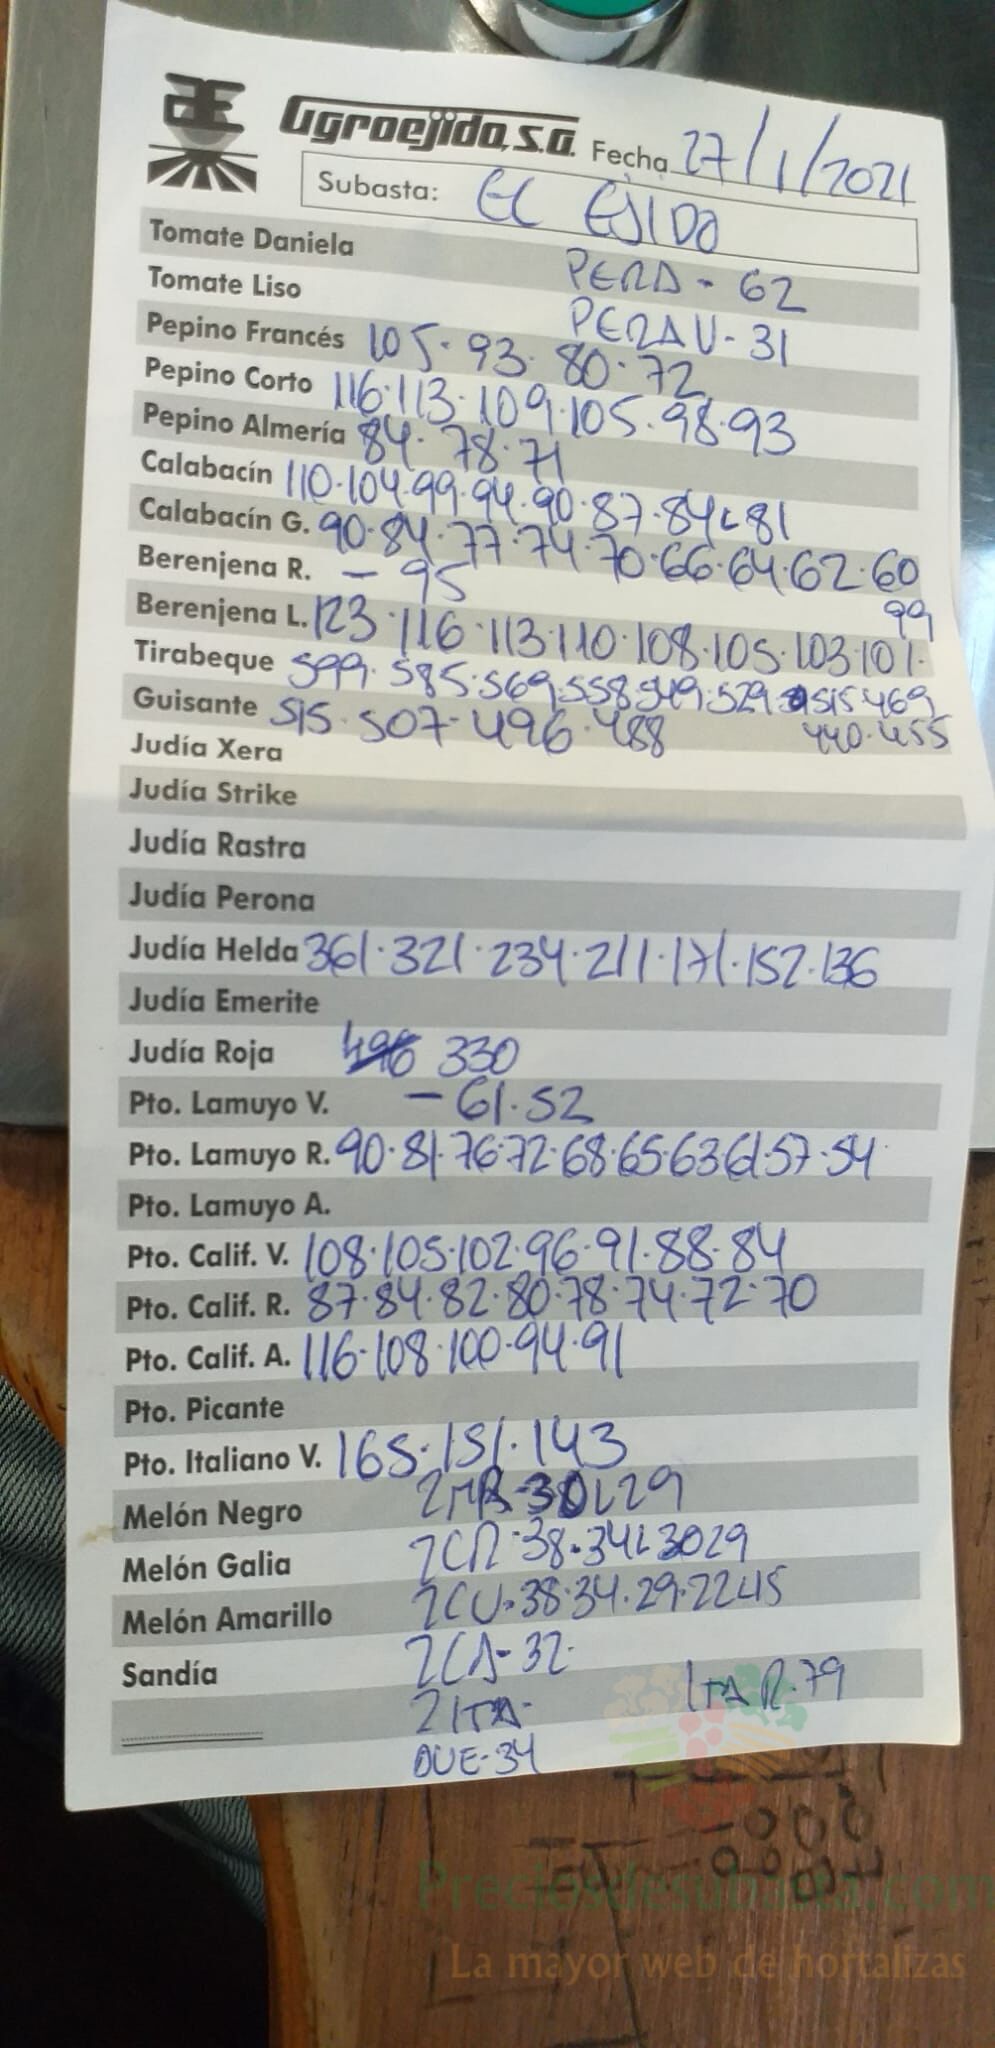 Agroejido, S.A. Fecha 27/1/2021
Subasta: EL EJIDO
Tomate Daniela PERA - 62
Tomate Liso PERA V - 31
Pepino Francés 105 · 93 · 80 · 72
Pepino Corto 116 · 113 · 109 · 105 · 98 · 93
Pepino Almería 84 · 78 · 71
Calabacín 110 · 104 · 99 · 94 · 90 · 87 · 84 L 81
Calabacín G. 90 · 84 · 77 · 74 · 70 · 66 · 64 · 62 · 60
Berenjena R. - 95
99
Berenjena L. 123 · 116 · 113 · 110 · 108 · 105 · 103 · 101 ·
Tirabeque 599 · 585 · 569 · 558 · 549 · 529 · 515 · 469
440 · 455
Guisante 515 · 507 · 496 · 488
Judía Xera
Judía Strike
Judía Rastra
Judía Perona
Judía Helda 361 · 321 · 234 · 211 · 171 · 152 · 136
Judía Emerite
Judía Roja 496 330
Pto. Lamuyo V. - 61 · 52
Pto. Lamuyo R. 90 · 81 · 76 · 72 · 68 · 65 · 63 · 61 · 57 · 54
Pto. Lamuyo A.
Pto. Calif. V. 108 · 105 · 102 · 96 · 91 · 88 · 84
Pto. Calif. R. 87 · 84 · 82 · 80 · 78 · 74 · 72 · 70
Pto. Calif. A. 116 · 108 · 100 · 94 · 91
Pto. Picante
Pto. Italiano V. 165 · 151 · 143
Melón Negro 30 L 29
Melón Galia 2CR · 38 · 34 L 30 29
Melón Amarillo 2CV · 38 · 34 · 29 · 22 L 15
Sandía 2CA - 32 ·
2 ITA - ITA R · 79
QUE - 34
Preciosdesubasta.com
La mayor web de hortalizas